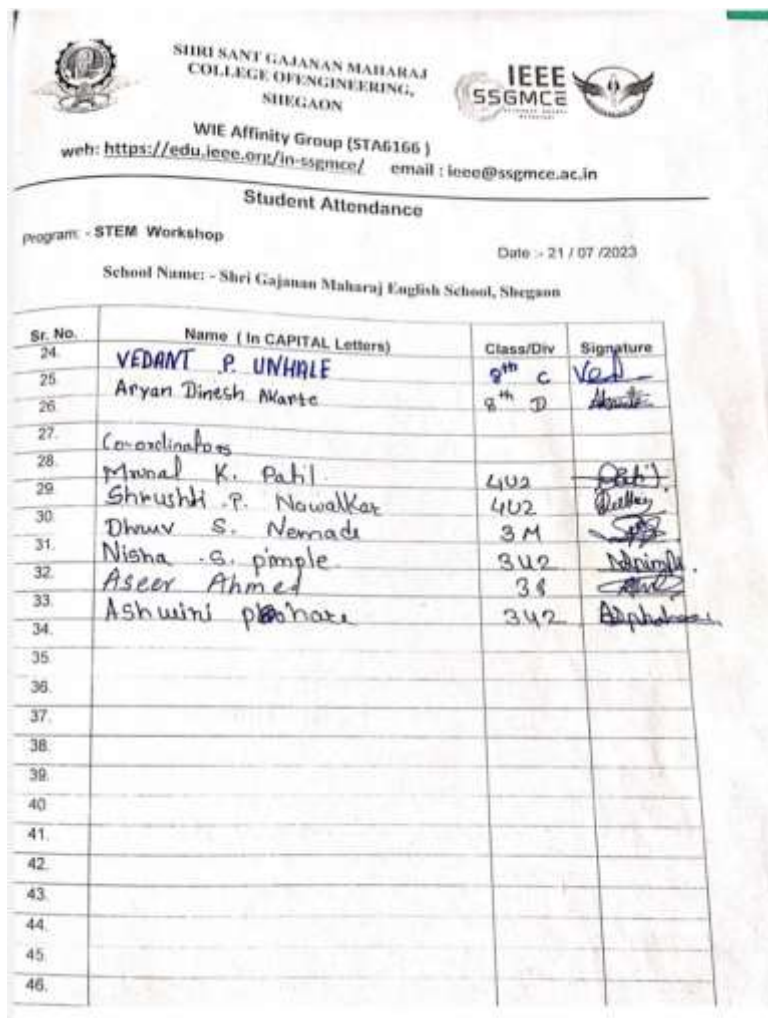 SHRI SANT GAJANAN MAHARAJ
COLLEGE OFENGINEERING,
SHEGAON
IEEE
SSGMCE
WIE Affinity Group (STA6166 )
web: https://edu.ieee.org/in-ssgmce/ email : ieee@ssgmce.ac.in
Student Attendance
Program: - STEM Workshop
Date :- 21 / 07 /2023
School Name: - Shri Gajanan Maharaj English School, Shegaon
Sr. No. Name ( In CAPITAL Letters) Class/Div Signature
24. VEDANT P. UNHALE 8th C Ved
25. Aryan Dinesh Akarte 8th D
26.
27. Co-ordinators
28. Mrunal K. Patil 4U2 Patil
29. Shrushti .P. Nawalkar 4U2
30. Dhruv S. Nemade 3 M
31. Nisha .S. pimple 3U2
32. Aseer Ahmed
33. Ashwini pohare 3U2
34.
35.
36.
37.
38.
39.
40
41.
42.
43.
44.
45.
46.